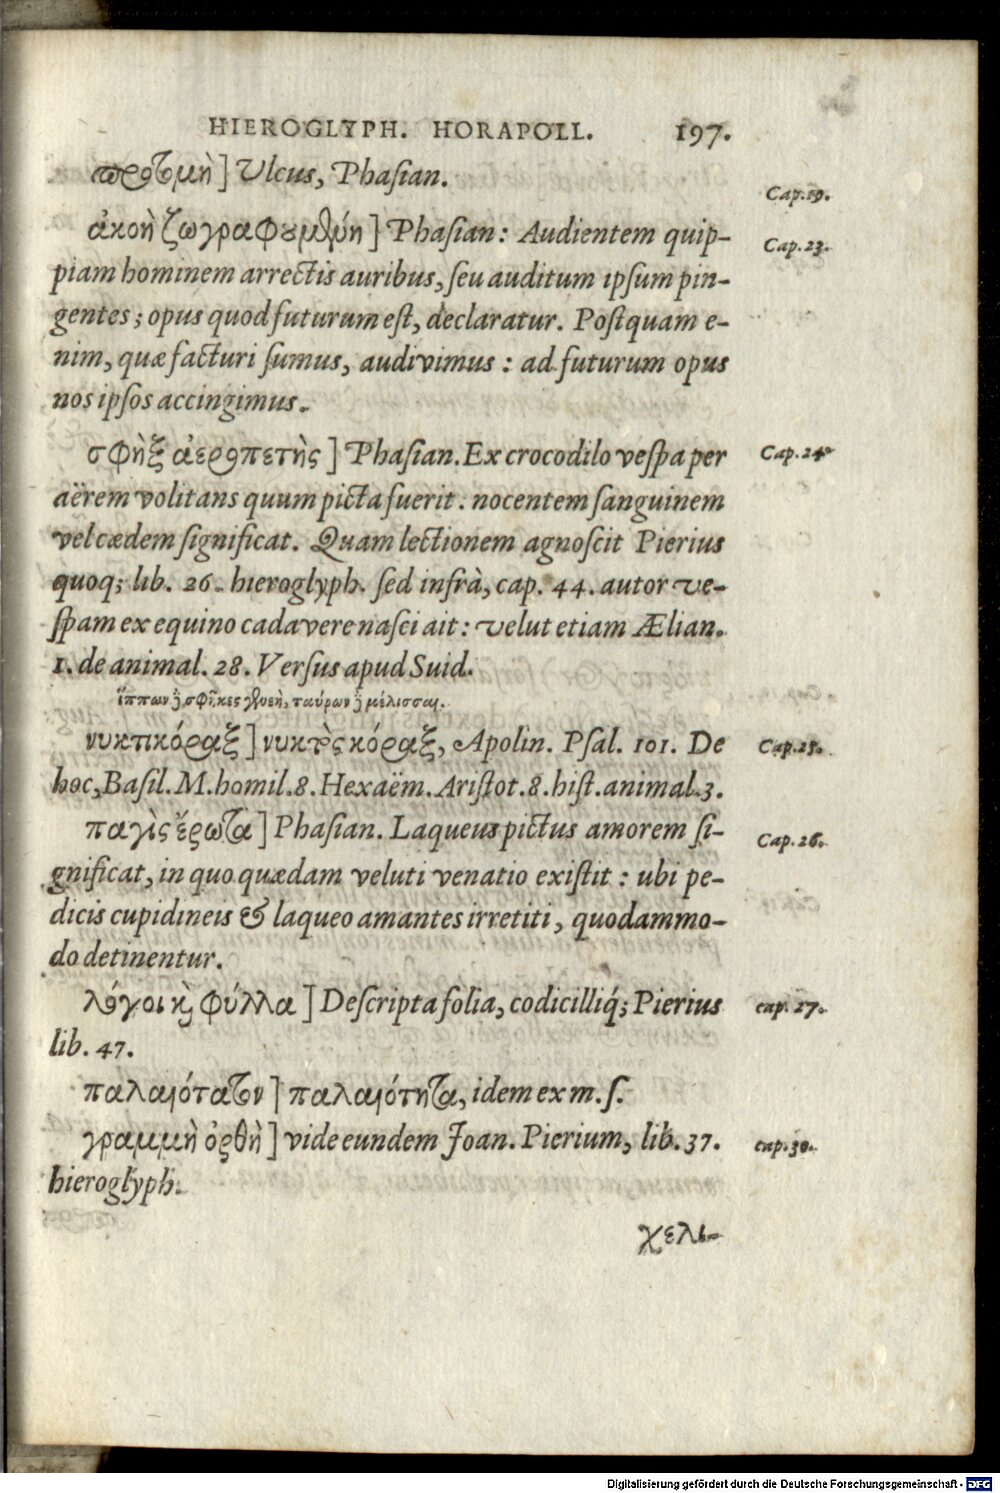 HIEROGLYPH. HORAPOLL. 197.
προτομὴ] Ulcus, Phaſian.
Cap. 19.
ἀκοὴ ζωγραφουμένη] Phaſian: Audientem quip-
Cap. 23.
piam hominem arrectis auribus, ſeu auditum ipſum pin-
gentes; opus quod futurum eſt, declaratur. Poſtquam e-
nim, quæ facturi ſumus, audivimus: ad futurum opus
nos ipſos accingimus.
σφὴξ ἀεροπετὴς] Phaſian. Ex crocodilo veſpa per
Cap. 24.
aërem volitans quum picta fuerit: nocentem ſanguinem
vel cædem ſignificat. Quam lectionem agnoſcit Pierius
quoq; lib. 26. hieroglyph. ſed infrà, cap. 44. autor ve-
ſpam ex equino cadavere naſci ait: velut etiam Ælian.
1. de animal. 28. Verſus apud Suid.
ἵππων δὲ σφῆκες γενεὴ, ταύρων δὲ μέλισσαι.
νυκτικόραξ] νυκτὸς κόραξ, Apolin. Pſal. 101. De
Cap. 25.
hoc, Baſil. M. homil. 8. Hexaëm. Ariſtot. 8. hiſt. animal. 3.
παγὶς ἔρωτα] Phaſian. Laqueus pictus amorem ſi-
Cap. 26.
gnificat, in quo quædam veluti venatio exiſtit: ubi pe-
dicis cupidineis & laqueo amantes irretiti, quodammo-
do detinentur.
λόγοι καὶ φύλλα] Deſcripta folia, codicilliq́; Pierius
cap. 27.
lib. 47.
παλαιότατον] παλαιότητα, idem ex m. ſ.
γραμμὴ ὀρθὴ] vide eundem Joan. Pierium, lib. 37.
cap. 30.
hieroglyph.
χελι-
Digitalisierung gefördert durch die Deutsche Forschungsgemeinschaft - DFG